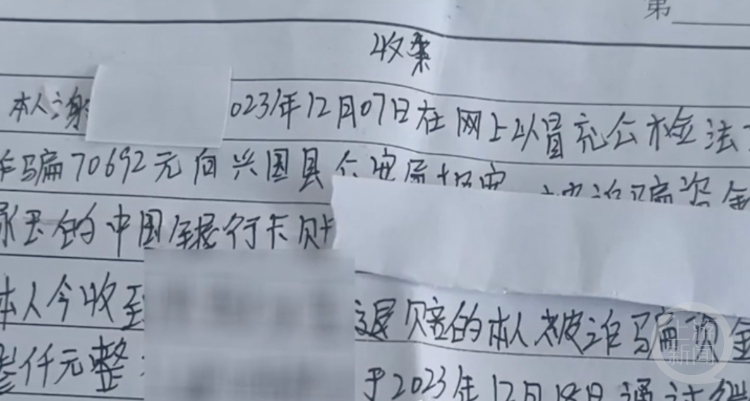 第
收案
本人谢 023年12月07日在网上以冒充公检法
诈骗70692元向兴国县公安局报案 被诈骗资金
的中国银行卡账
本人今收到 退赔的本人被诈骗资金
叁仟元整 于2023年12月18日通过
上游新闻